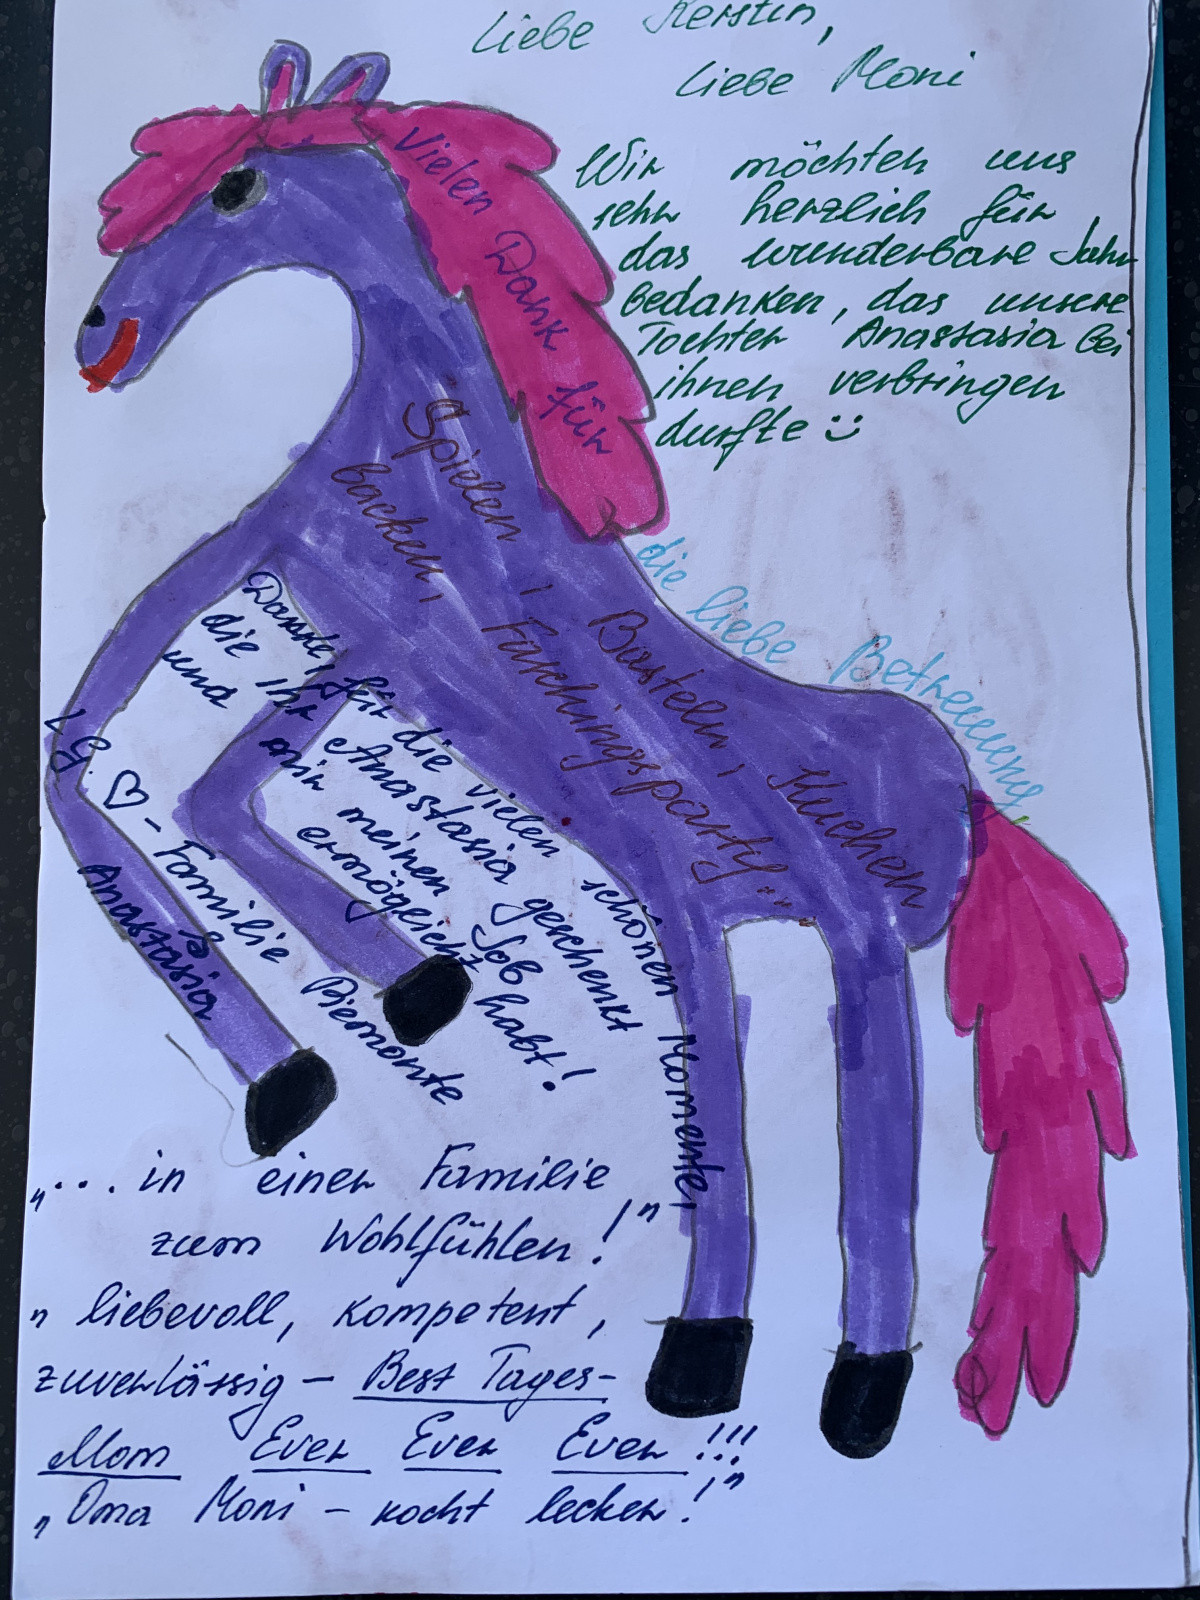 Liebe Kerstin,
Liebe Moni
Wir möchten uns
sehr herzlich für
das wunderbare Jahr
bedanken, das unsere
Tochter Anastasia bei
ihnen verbringen
durfte :)
Vielen Dank für
die liebe Betreuung,
Spielen, Basteln, Kuchen
backen, Faschingsparty...
Danke, für die vielen schönen Momente,
die Ihr Anastasia geschenkt
und mir meinen Job
ermögeicht habt!
LG. ♡ - Familie Piemonte
&
Anastasia
"... in einer Familie
zum Wohlfühlen!"
"liebevoll, kompetent,
zuverlässig - Best Tages-
Mom Ever Ever Ever!!!"
"Oma Moni - kocht lecker!"